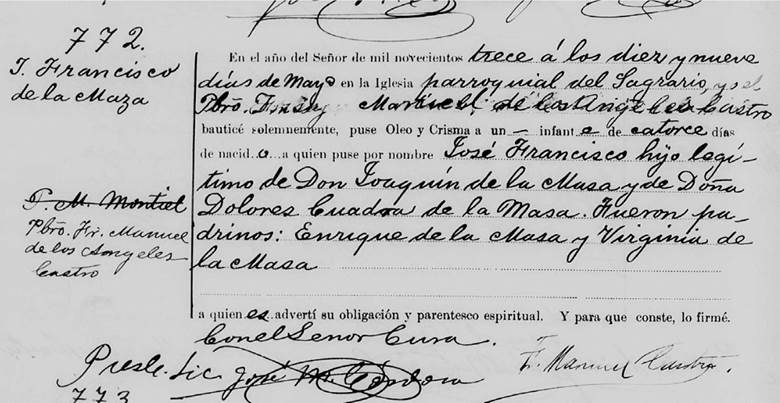 772.
J. Francisco
de la Maza
En el año del Señor de mil novecientos trece á los diez y nueve
días de Mayo en la Iglesia parroquial del Sagrario, yo el
Pbro. Fray Manuel de los Angeles Castro
bauticé solemnemente, puse Oleo y Crisma a un infante de catorce días
de nacido a quien puse por nombre José Francisco hijo legí-
timo de Don Joaquín de la Masa y de Doña
Dolores Cuadra de la Masa. Fueron pa-
drinos: Enrique de la Masa y Virginia de
la Masa
P. M. Montiel
Pbro. Fr. Manuel
de los Angeles
Castro
a quienes advertí su obligación y parentesco espiritual. Y para que conste, lo firmé.
Con el Señor Cura.
Presb. Lic. José M. Córdova
F. Manuel Castro.
773